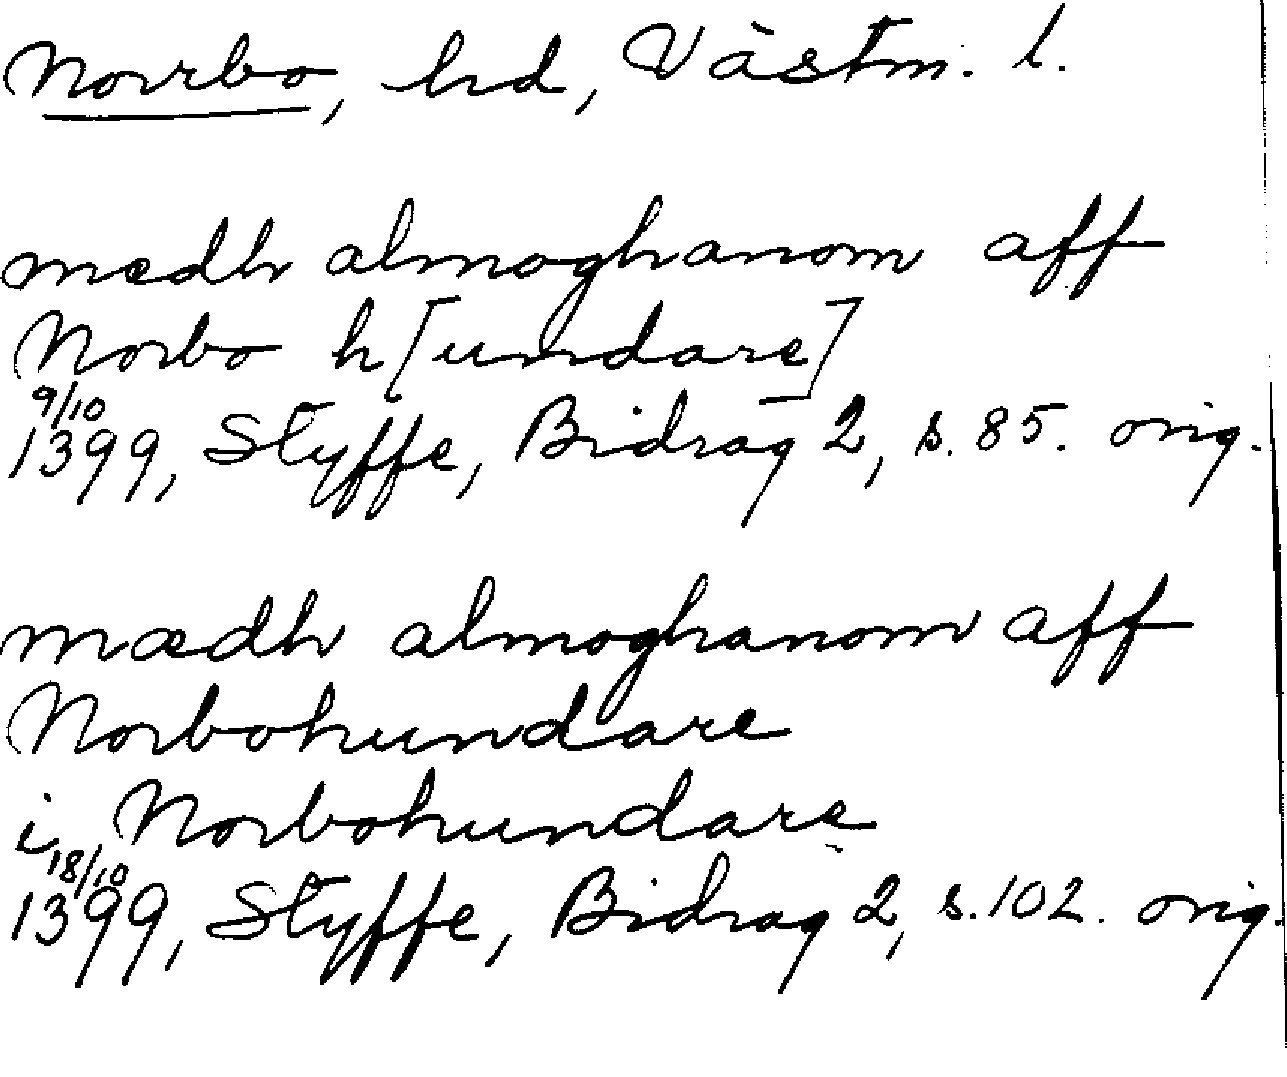 Norrbo, hd, Västm. l.
mædh almoghanom aff
Norbo h[undare]
9/10
1399, Styffe, Bidrag 2, s. 85. orig.
mædh almoghanom aff
Norbohundare
i Norbohundare
18/10
1399, Styffe, Bidrag 2, s. 102. orig.